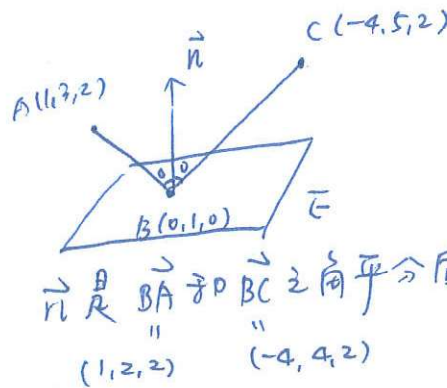 C(-4,5,2)
n⃗
A(1,3,2)
B(0,1,0)
E
n⃗ 是 BA⃗ 和 BC⃗ 之角平分
(1,2,2) (-4,4,2)